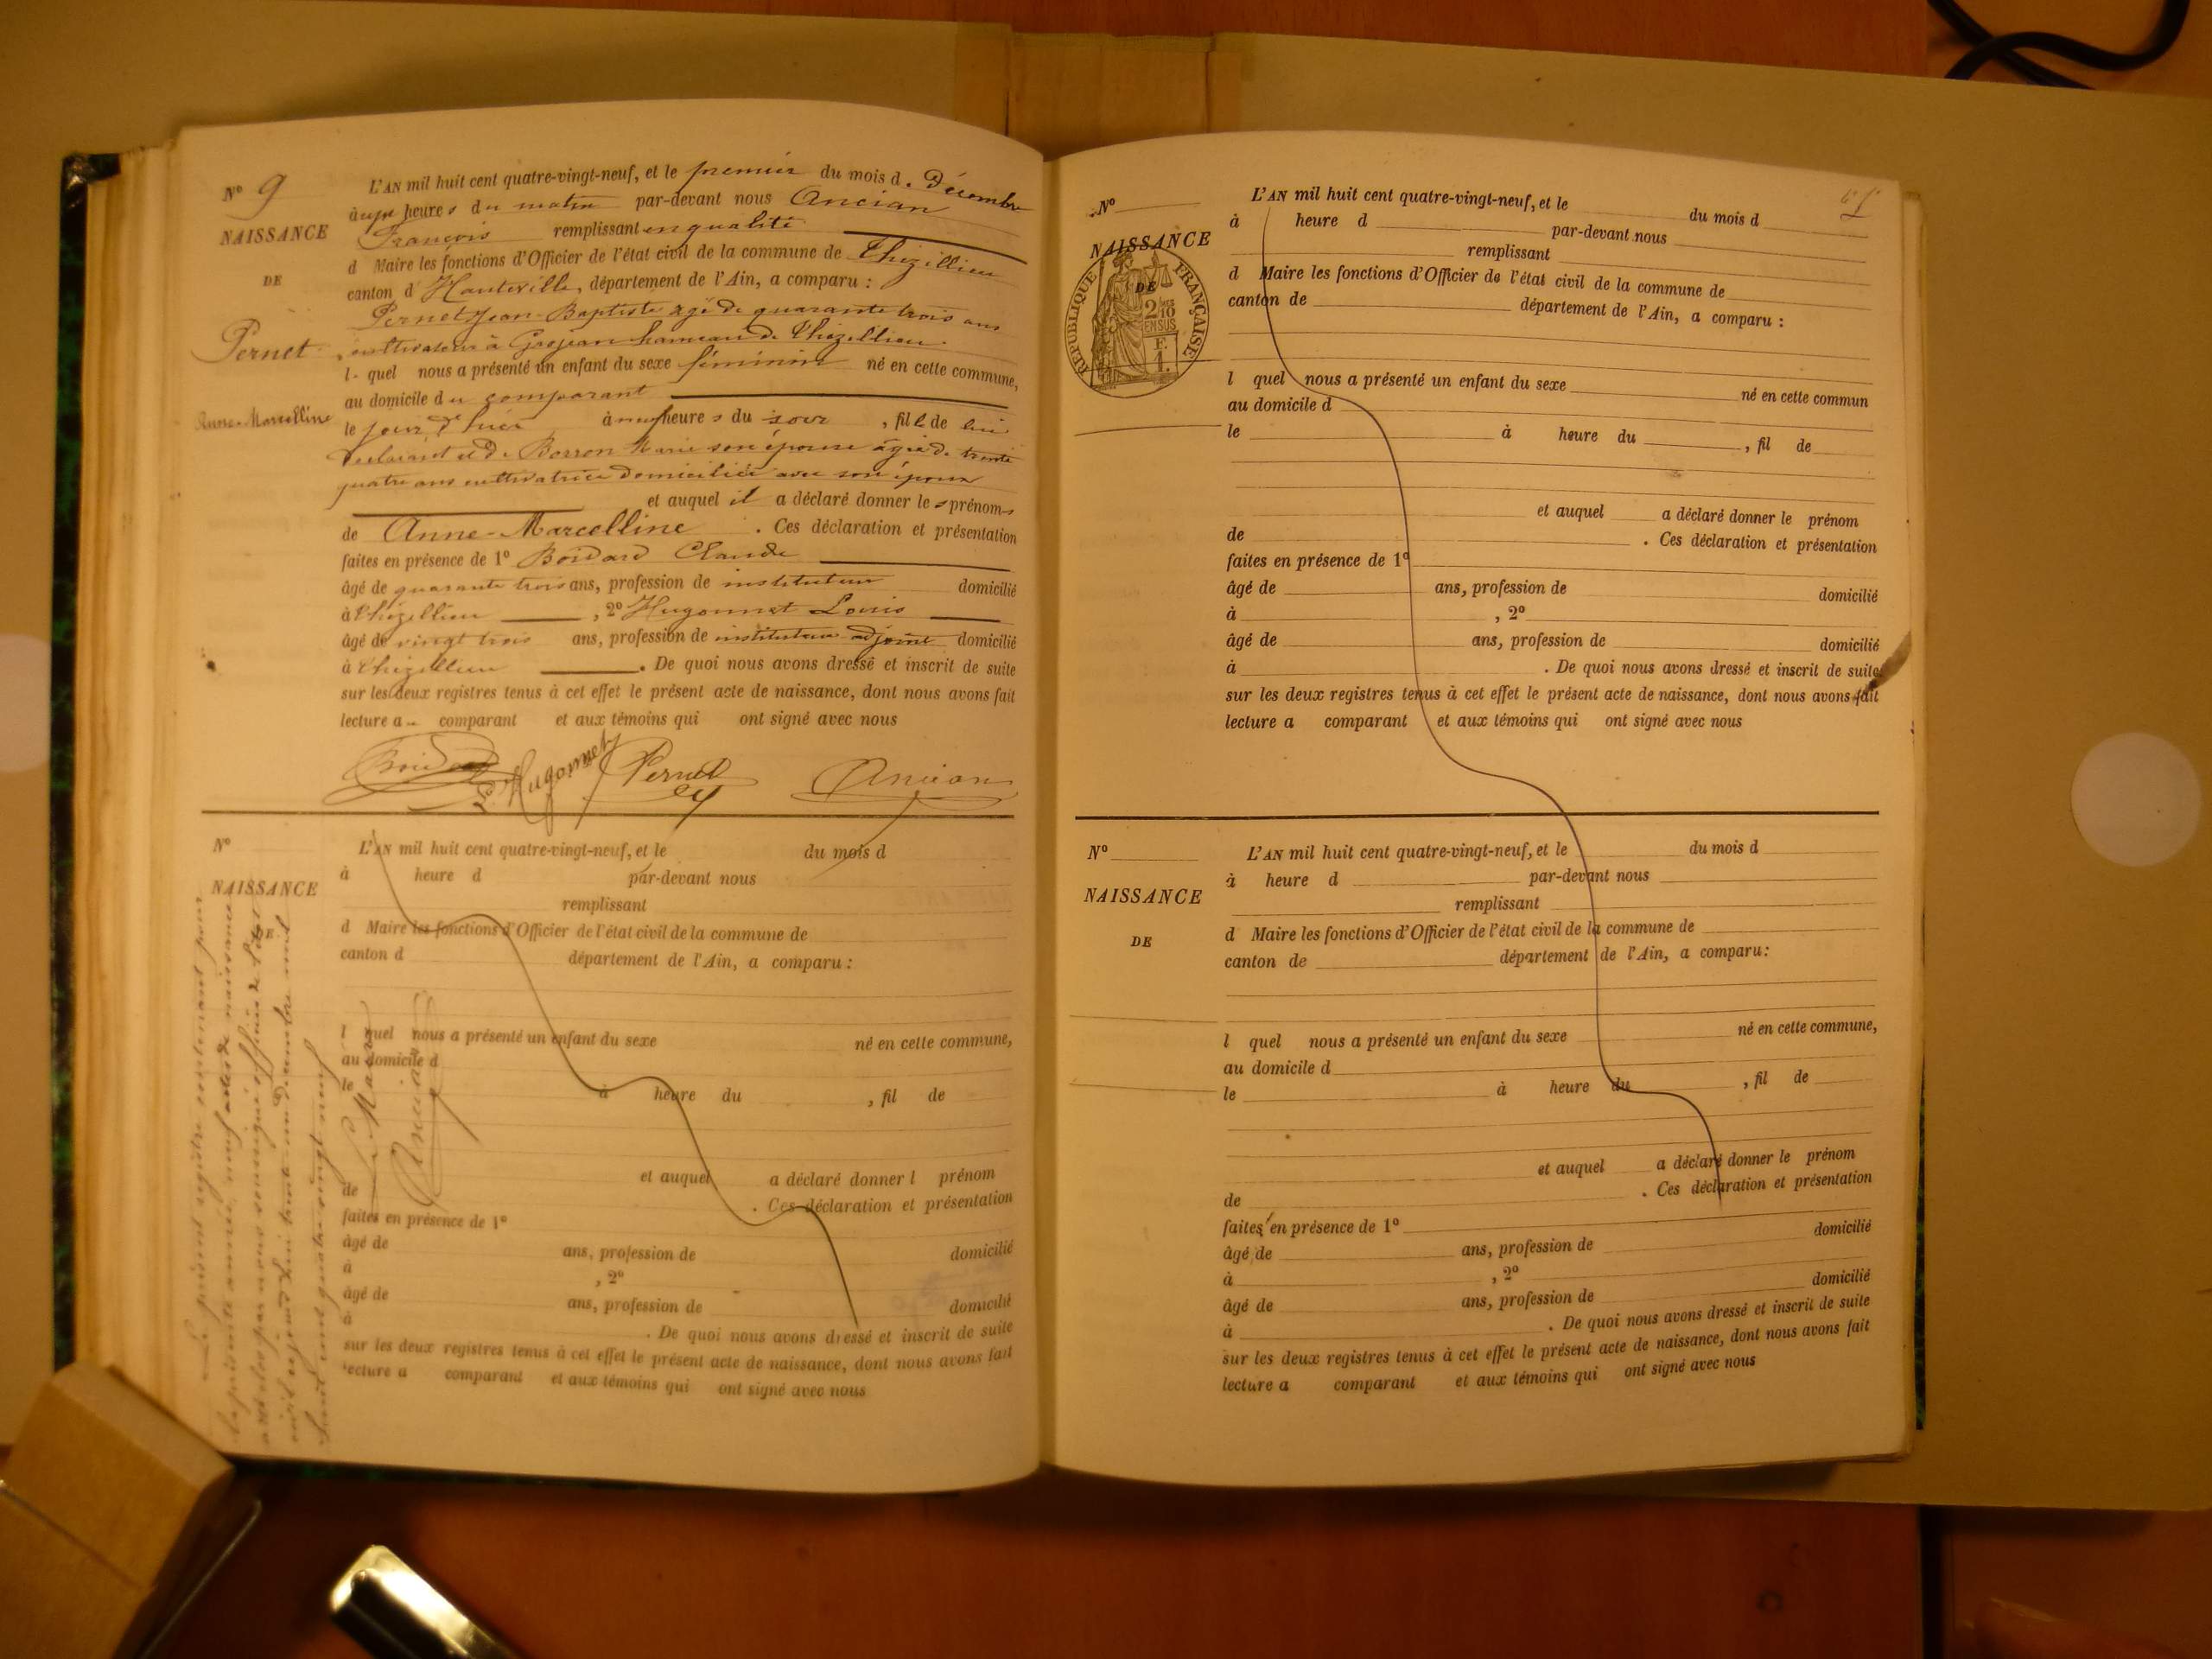 N° 9
NAISSANCE
DE
Pernet
Anne-Marcelline
L'AN mil huit cent quatre-vingt-neuf, et le premier du mois d. Décembre
à heures du matin par-devant nous Ancian
François remplissant en qualité
d Maire les fonctions d'Officier de l'état civil de la commune de Thézillieu
canton d'Hauteville, département de l'Ain, a comparu :
Pernet Jean-Baptiste âgé de quarante trois ans
cultivateur à Grojean hameau de Thézillieu.
l- quel nous a présenté un enfant du sexe féminin né en cette commune,
au domicile du comparant
le jour d'hier à neuf heures du soir , fille de lui
déclarant et de Borron Marie son épouse âgée de trente
quatre ans cultivatrice domiciliée avec son époux
et auquel il a déclaré donner les prénoms
de Anne-Marcelline . Ces déclaration et présentation
faites en présence de 1° Boidard Claude
âgé de quarante trois ans, profession de instituteur domicilié
à Thézillieu , 2° Hugonnet Louis
âgé de vingt trois ans, profession de instituteur adjoint domicilié
à Thézillieu . De quoi nous avons dressé et inscrit de suite
sur les deux registres tenus à cet effet le présent acte de naissance, dont nous avons fait
lecture au comparant et aux témoins qui ont signé avec nous
Boidard Ls Hugonnet Pernet Ancian
N°
NAISSANCE
DE
L'AN mil huit cent quatre-vingt-neuf, et le du mois d
à heure d par-devant nous
remplissant
d Maire les fonctions d'Officier de l'état civil de la commune de
canton d département de l'Ain, a comparu :
l quel nous a présenté un enfant du sexe né en cette commune,
au domicile d
le à heure du , fil de
et auquel a déclaré donner l prénom
de . Ces déclaration et présentation
faites en présence de 1°
âgé de ans, profession de domicilié
à , 2°
âgé de ans, profession de domicilié
à . De quoi nous avons dressé et inscrit de suite
sur les deux registres tenus à cet effet le présent acte de naissance, dont nous avons fait
lecture a comparant et aux témoins qui ont signé avec nous
Le présent registre contenant pour
la présente année, neuf actes de naissance
a été clos par nous soussigné officier de l'état
civil aujourd'hui trente-un décembre mil
huit cent quatre vingt neuf
Le Maire
Ancian
N°
NAISSANCE
DE
RÉPUBLIQUE FRANÇAISE
2/10
EN SUS
F.
1.
L'AN mil huit cent quatre-vingt-neuf, et le du mois d
à heure d par-devant nous
remplissant
d Maire les fonctions d'Officier de l'état civil de la commune de
canton de département de l'Ain, a comparu :
l quel nous a présenté un enfant du sexe né en cette commun
au domicile d
le à heure du , fil de
et auquel a déclaré donner le prénom
de . Ces déclaration et présentation
faites en présence de 1°
âgé de ans, profession de domicilié
à , 2°
âgé de ans, profession de domicilié
à . De quoi nous avons dressé et inscrit de suite
sur les deux registres tenus à cet effet le présent acte de naissance, dont nous avons fait
lecture a comparant et aux témoins qui ont signé avec nous
N°
NAISSANCE
DE
L'AN mil huit cent quatre-vingt-neuf, et le du mois d
à heure d par-devant nous
remplissant
d Maire les fonctions d'Officier de l'état civil de la commune de
canton de département de l'Ain, a comparu :
l quel nous a présenté un enfant du sexe né en cette commune,
au domicile d
le à heure du , fil de
et auquel a déclaré donner le prénom
de . Ces déclaration et présentation
faites en présence de 1°
âgé de ans, profession de domicilié
à , 2°
âgé de ans, profession de domicilié
à . De quoi nous avons dressé et inscrit de suite
sur les deux registres tenus à cet effet le présent acte de naissance, dont nous avons fait
lecture a comparant et aux témoins qui ont signé avec nous